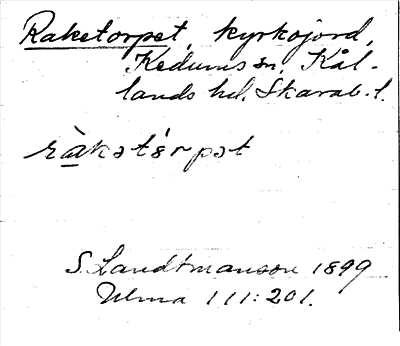 Raketorpet, kyrkojord,
Kedums sn, Kål-
lands hd. Skarab. l.
ràkatǻrpat
S. Landtmanson 1899
Ulma 111:201.